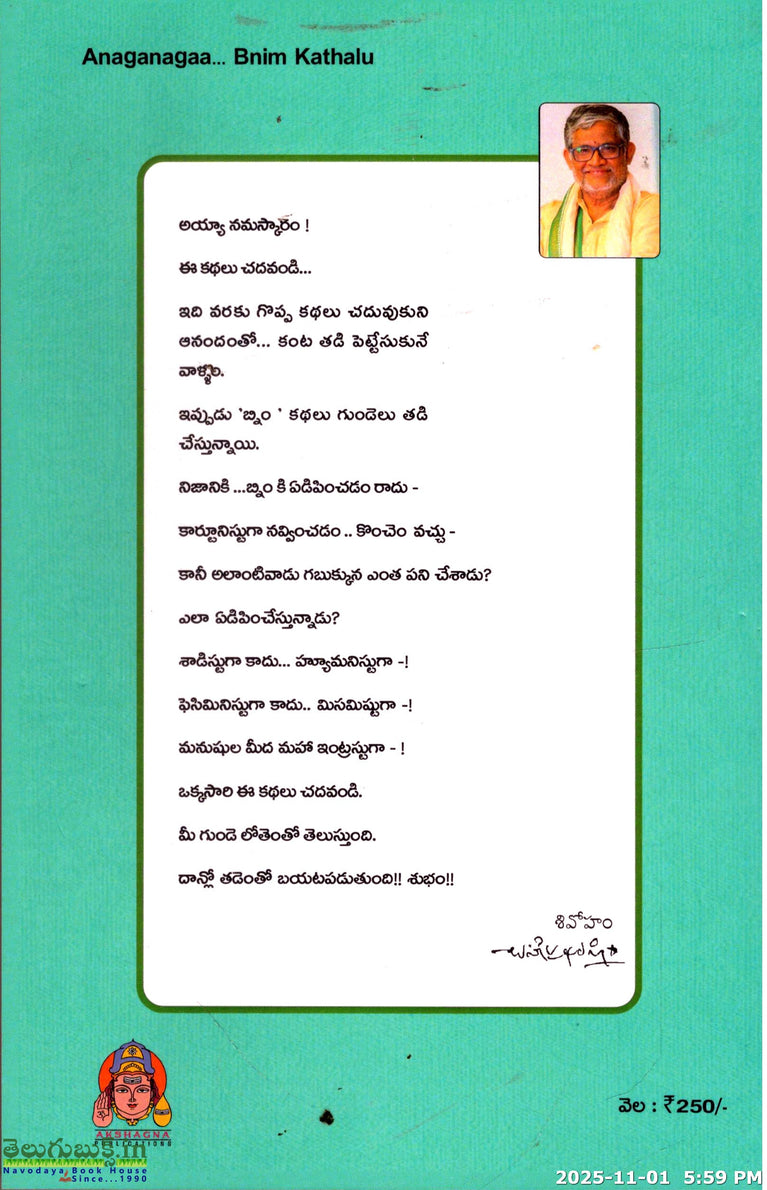 Anaganagaa... Bnim Kathalu
అయ్యా నమస్కారం !
ఈ కథలు చదవండి...
ఇది వరకు గొప్ప కథలు చదువుకుని
ఆనందంతో... కంట తడి పెట్టేసుకునే
వాళ్ళం.
ఇప్పుడు 'బ్నిం ' కథలు గుండెలు తడి
చేస్తున్నాయి.
నిజానికి ...బ్నిం కి ఏడిపించడం రాదు -
కార్టూనిస్టుగా నవ్వించడం .. కొంచెం వచ్చు -
కానీ అలాంటివాడు గబుక్కున ఎంత పని చేశాడు?
ఎలా ఏడిపించేస్తున్నాడు?
శాడిస్టుగా కాదు... హ్యూమనిస్టుగా -!
ఫెసిమినిస్టుగా కాదు.. మిసమిష్టుగా -!
మనుషుల మీద మహా ఇంట్రస్టుగా - !
ఒక్కసారి ఈ కథలు చదవండి.
మీ గుండె లోతెంతో తెలుస్తుంది.
దాన్లో తడెంతో బయటపడుతుంది!! శుభం!!
శివోహం
వెల : ₹250/-
AKSHAGNA
PUBLICATIONS
తెలుగుబుక్స్.in
Navodaya Book House
Since...1990
2025-11-01 5:59 PM